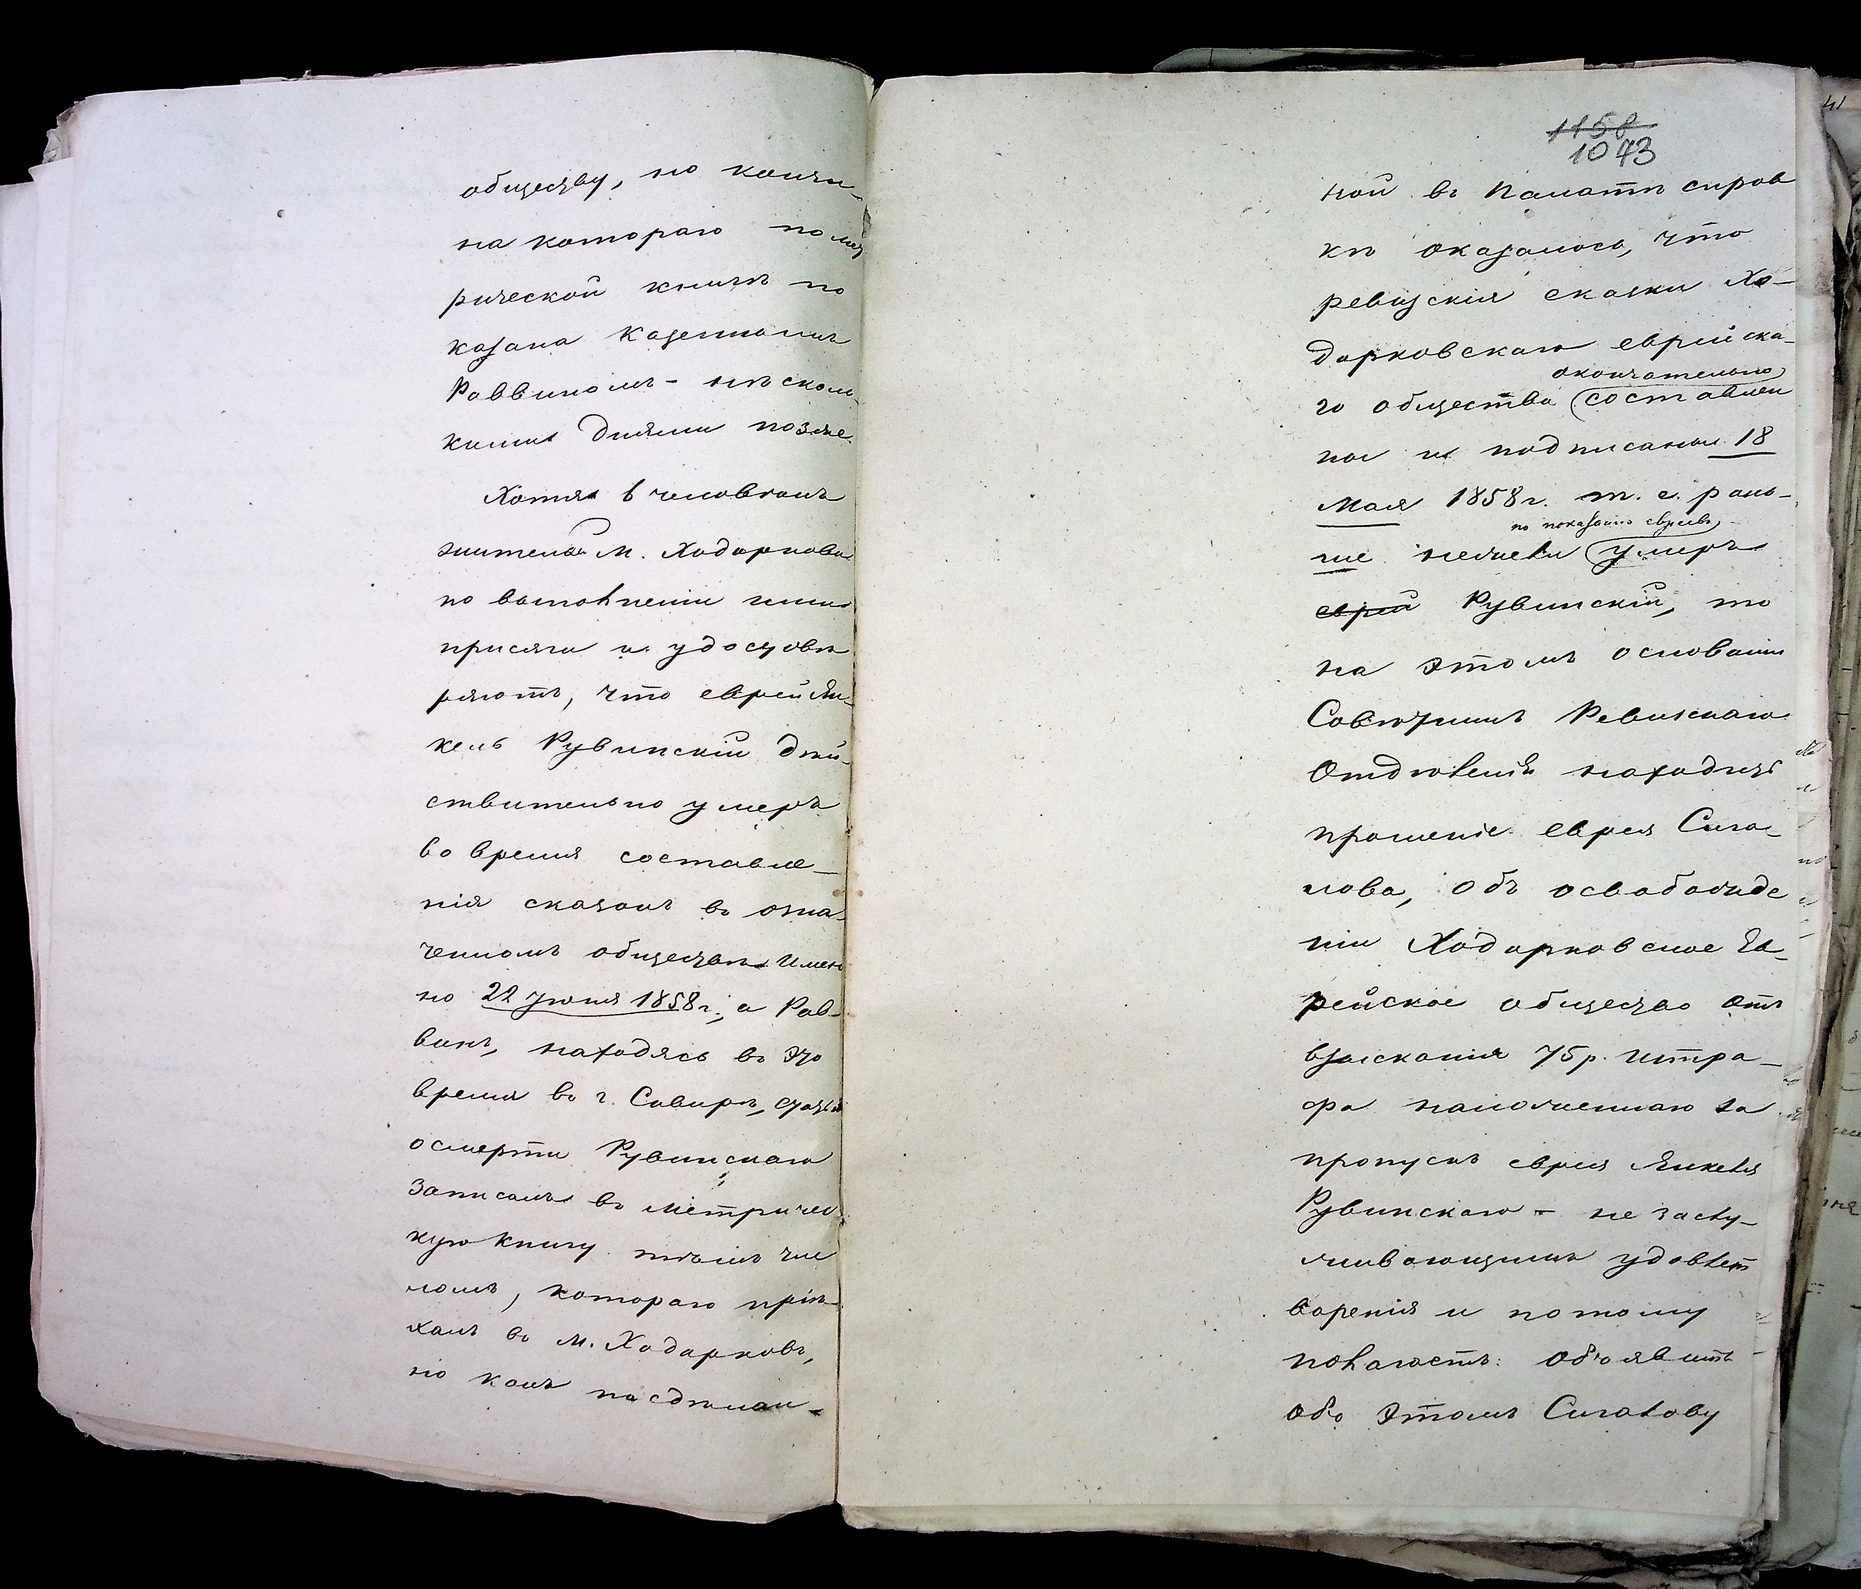 обществу, но кончи-
на котораго по мет
рической книгѣ по
казана Казеннымъ
Раввиномъ - нѣсколь-
кими днями позже.
Хотя 6 человѣкъ
жителей м. Ходоркова
по выполненіи ими
присяги и удостовѣ
ряютъ, что еврей Ян-
кель Рувинскій дѣй-
ствительно умеръ
во время составле-
нія сказокъ въ озна-
ченномъ обществѣ имен
но 22 Іюня 1858 г., а Рав-
винъ, находясь въ это
время въ г. Сквирѣ,
о смерти Рувинскаго
записалъ въ метричес
кую книгу тѣмъ чис
ломъ, котораго пріѣ-
халъ въ м. Ходорковъ,
но какъ по сдѣлан-
1158
1073
ной въ Палатѣ справ
кѣ оказалось, что
ревизскія сказки Хо-
дорковскаго еврейска-
окончательно
го общества составлен
ны и подписаны 18
Мая 1858 г. т. е. рань-
по показанію евреевъ,
ше нежели умеръ
еврей Рувинскій, то
на этомъ основаніи
Совѣтникъ Ревизскаго
Отдѣленія находитъ
прошеніе еврея Сига-
лова, объ освобожде
ніи Ходорковское Ев-
рейское общество отъ
взысканія 75 р. штра-
фа наложеннаго за
пропускъ еврея Янкеля
Рувинскаго - не заслу-
живающимъ удовлет
воренія и потому
полагаетъ: объявить
объ этомъ Сигалову